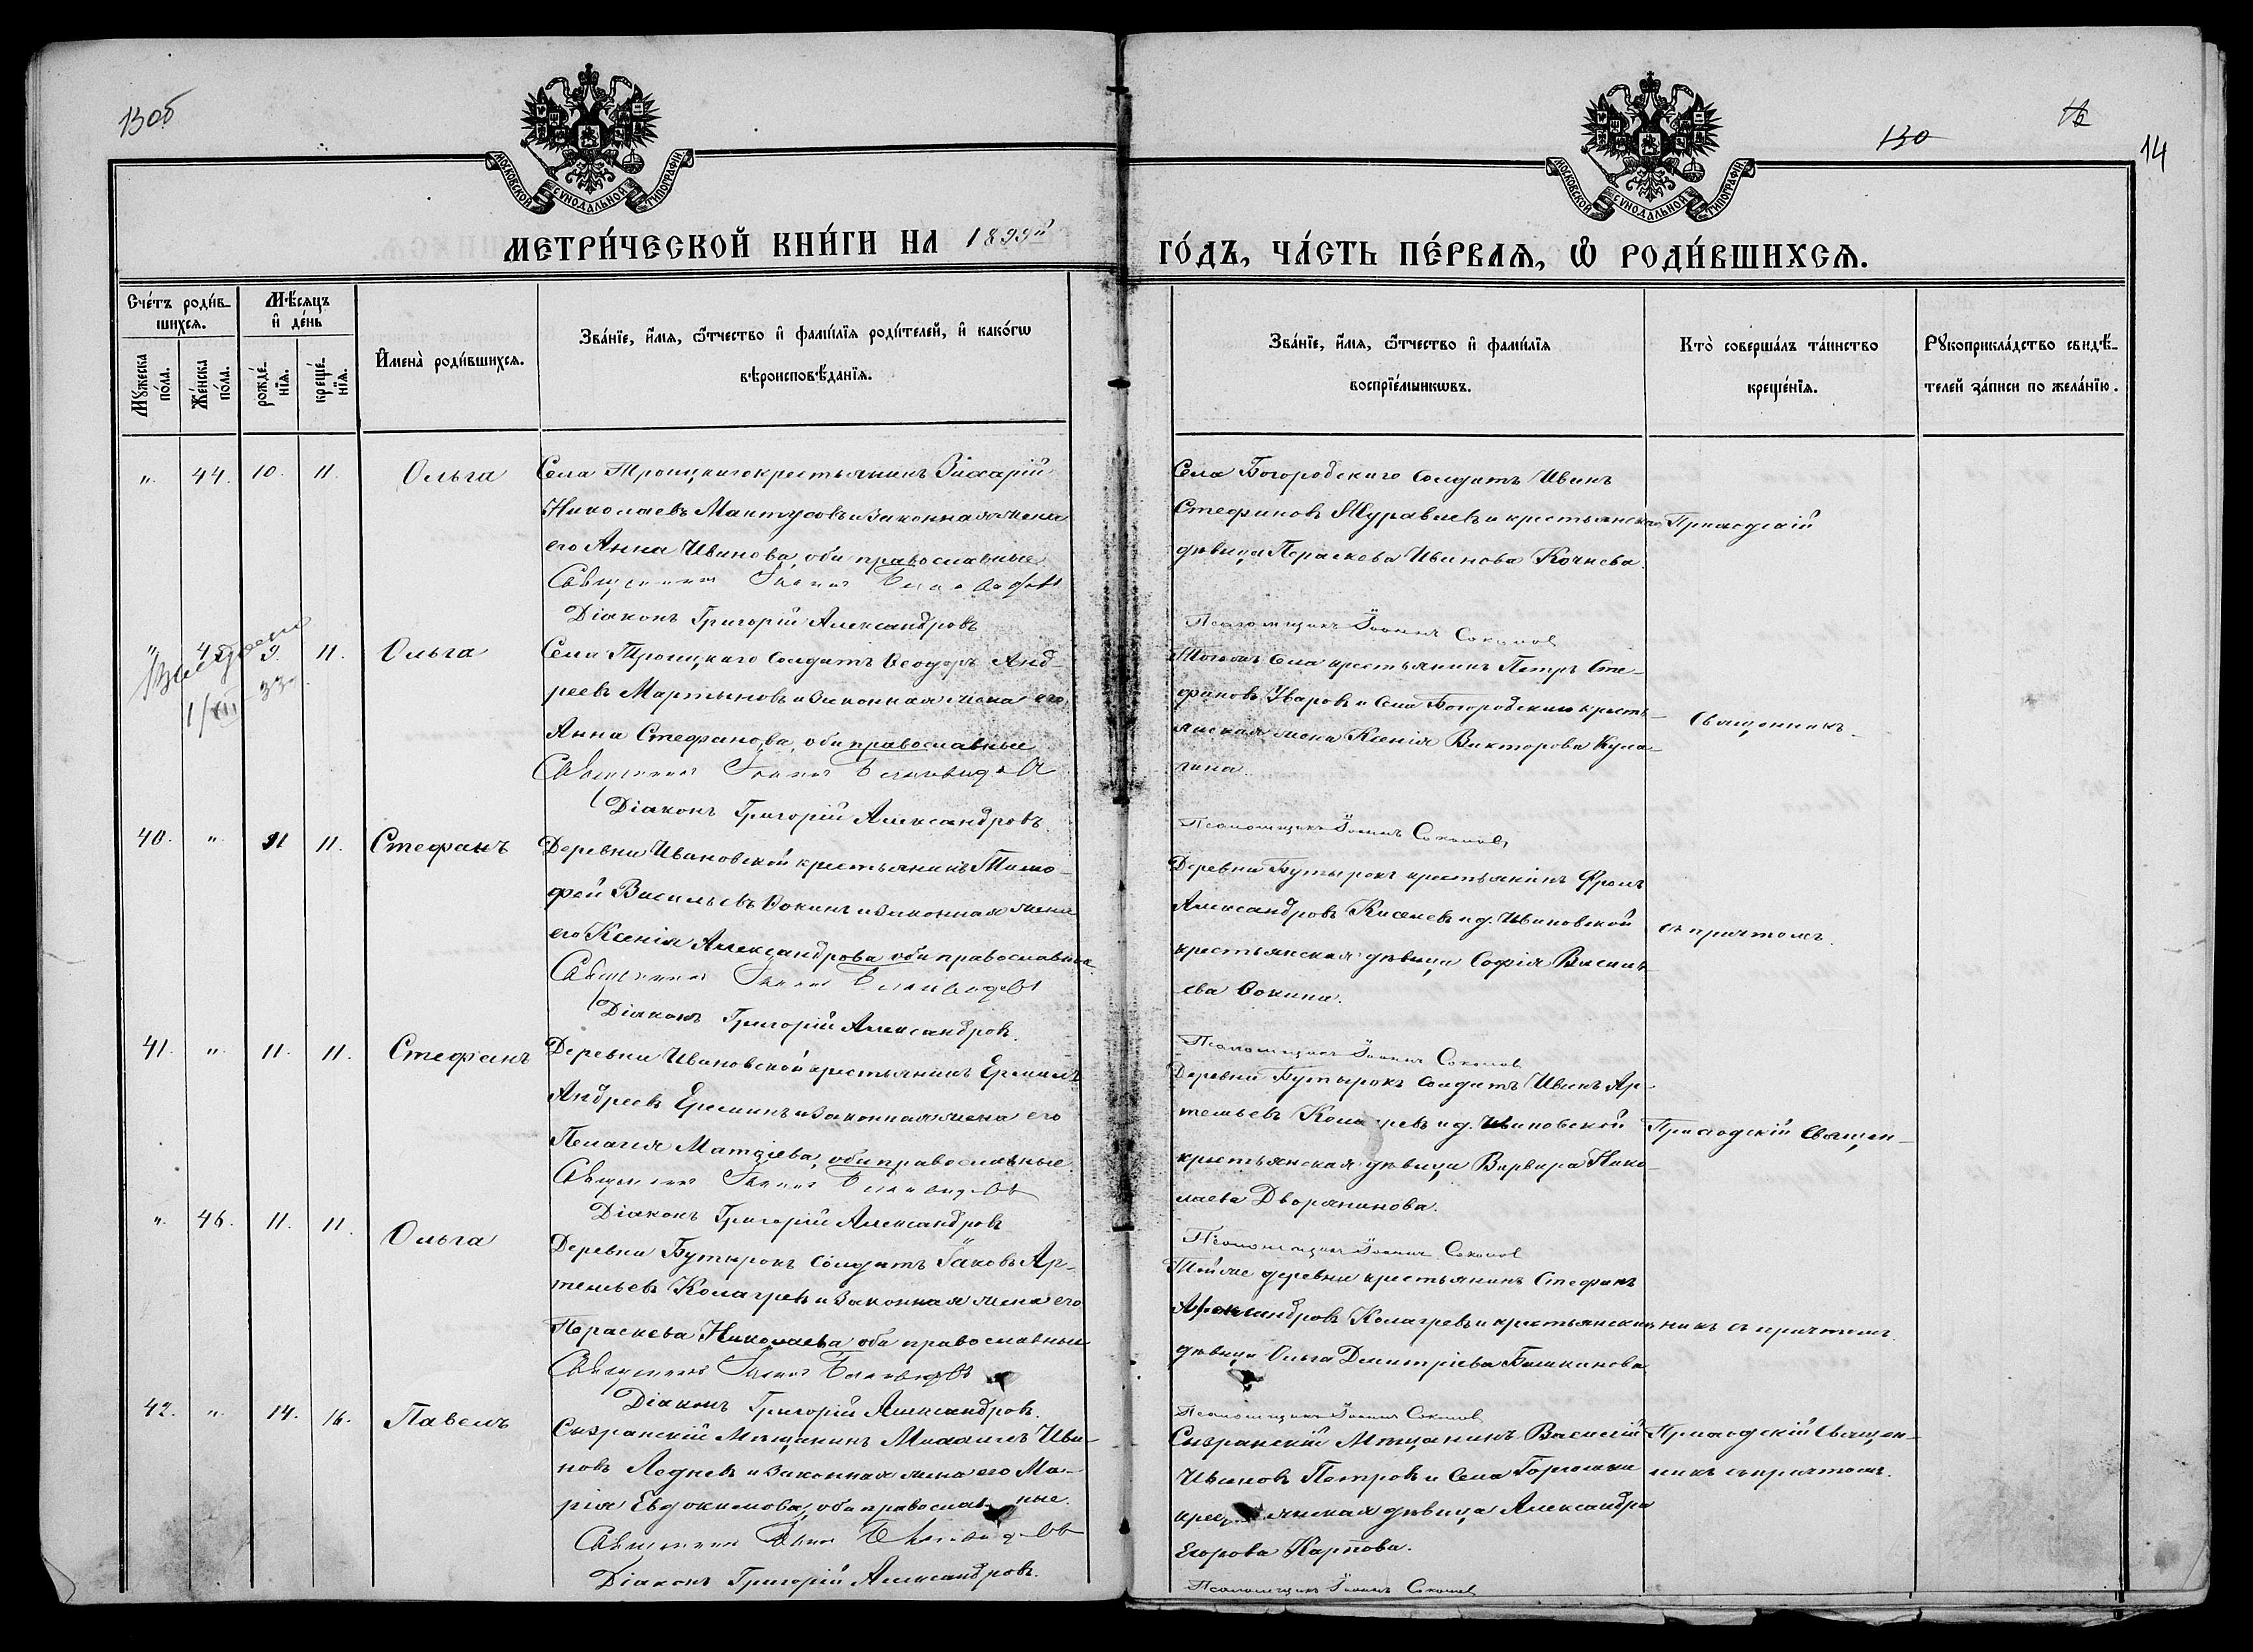 13об
130
14
МОСКОВСКОЙ СУНОДАЛЬНОЙ ТИПОГРАФІИ
МОСКОВСКОЙ СУНОДАЛЬНОЙ ТИПОГРАФІИ
МЕТРИ́ЧЕСКОЙ КНИ́ГИ НА 1899й ГО́ДЪ, ЧА́СТЬ ПЕ́РВАѦ, Ѡ РОДИ́ВШИХСѦ.
Сче́тъ роди́в-
шихсѧ.
Мѣ́сѧцъ
и҆ де́нь
Мꙋжеска по́ла.
Же́нска по́ла.
рожде́-нїѧ.
креще́-нїѧ.
И҆мена̀ роди́вшихсѧ.
Зва́нїе, и҆́мѧ, ѻ҆́тчество и҆ фамі́лїѧ роди́телей, и҆ како́гѡ
вѣроисповѣ́данїѧ.
Зва́нїе, и҆́мѧ, ѻ҆́тчество и҆ фамі́лїѧ
воспрїе́мникѡвъ.
Кто̀ соверша́лъ та́инство
креще́нїѧ.
Рꙋкоприкла́дство свидѣ́-
телей за́писи по жела́нїю.
" 44. 10. 11. Ольга Села Троицкаго крестьянинъ Захарій
Николаевъ Мантусовъ и законная жена
его Анна Иванова, оба православные
Священникъ Іоаннъ
Діаконъ Григорій Александровъ
Села Богородскаго солдатъ Иванъ
Стефановъ Журавлевъ и крестьянская
дѣвица Параскева Иванова Кочнева.
Псаломщикъ Іоаннъ Соколовъ
Приходскій
" 45. 9. 11. Ольга Села Троицкаго солдатъ Ѳеодоръ Анд-
реевъ Мартыновъ и законная жена его
Анна Стефанова, оба православные
Священникъ Іоаннъ
Діаконъ Григорій Александровъ.
Тогоже села крестьянинъ Петръ Сте-
фановъ Уваровъ и села Богородскаго кресть-
янская жена Ксенія Викторова Кула-
гина.
Псаломщикъ Іоаннъ Соколовъ
священникъ
40. " 11 11. Стефанъ Деревни Ивановской крестьянинъ Тимо-
фей Васильевъ Ѳокинъ и законная жена
его Ксенія Александрова оба православные.
Священникъ Іоаннъ
Діаконъ Григорій Александровъ.
Деревни Бутырокъ крестьянинъ Фролъ
Александровъ Киселевъ и д. Ивановской
крестьянская дѣвица Софія Василь-
ева Ѳокина.
Псаломщикъ Іоаннъ Соколовъ
съ причтомъ.
41. " 11. 11. Стефанъ Деревни Ивановской крестьянинъ Ермилъ
Андреевъ Ереминъ и законная жена его
Пелагея Матѳіева, оба православные.
Священникъ Іоаннъ
Діаконъ Григорій Александровъ
Деревни Бутырокъ солдатъ Иванъ Ар-
темьевъ и д. Ивановской
крестьянская дѣвица Варвара Нико-
лаева Дворянинова.
Псаломщикъ Іоаннъ Соколовъ
Приходскій Священ-
" 46. 11. 11. Ольга Деревни Бутырокъ солдатъ Іаковъ Ар-
темьевъ Калагревъ и законная жена его
Параскева Николаева оба православные
Священникъ Іоаннъ
Діаконъ Григорій Александровъ.
Той же деревни крестьянинъ Стефанъ
Александровъ Калагревъ и крестьянская
дѣвица Ольга Димитріева Башканова
Псаломщикъ Іоаннъ Соколовъ
никъ съ причтомъ.
42. " 14. 16. Павелъ Сызранскій Мѣщанинъ Михаилъ Ива-
новъ Ледневъ и законная жена его Ма-
рія Евдокимова, оба православные.
Священникъ Іоаннъ
Діаконъ Григорій Александровъ.
Сызранскій Мѣщанинъ Василій
Ивановъ Петровъ и села Горюшки
крестьянская дѣвица Александра
Егорова Карпова.
Псаломщикъ Іоаннъ Соколовъ
Приходскій Священ-
никъ съ причтомъ.